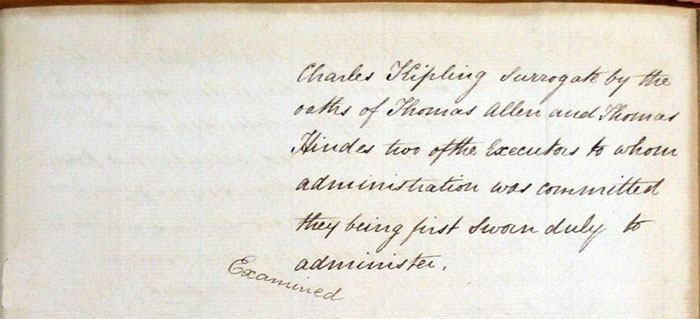 Charles Kipling Surrogate by the
oaths of Thomas Allen and Thomas
Hindes two of the Executors to whom
administration was committed
they being first Sworn duly to
administer.
Examined